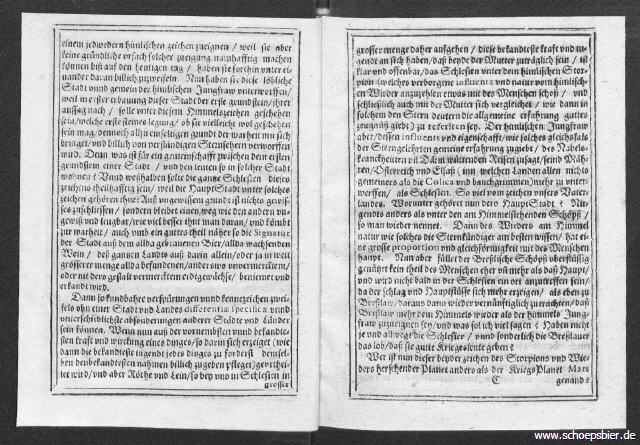 einem jedwedern himlischen zeichen zueignen / weil sie aber
keine gründliche ursach solcher zueigung namhafftig machen
können biß auff den heutigen tag / haben sie forthin unter ei-
nander daran billich zuzweifeln. Nun haben sie diese löbliche
Stadt unnd gemein der himlischen Jungfraw unterworffen/
weil in erster erbauung dieser Stadt der erste grundstein / ihrer
aussag nach / solle unter diesem Himmelszeichen geschehen
sein/
sein mag / dennoch all zu einseltigen grundt der warheit mit sich
bringet / und billich von verständigen Sternsehern verworffen
wird. Denn was ist für ein gemeinschafft zwischen dem ersten
grundstein einer Stadt / und den leuten so in solcher Stadt
wohnen? Unnd weßhalben solte die gantze Schlesien dieses
zeichens theilhafftig sein / weil die HauptStadt unter solches
zeichen gehören thue? Auß ungewissem grund ist nichts gewis-
ses zuschliessen / sondern bleibet einen weg wie den andern un-
gewiß und leugbar / wie viel besser thut man daran / und kömbt
zur warheit / auch umb ein guttes theil näher so die Signatur
der Stadt auß dem allda gebrauenen Bier / allda wachsenden
Wein / deß gantzen Landts auß darin allein / oder ja in weit
grösserer menge allda befundenen / anderswo unvermercktem /
oder mit dero gestalt vermercktem erdtgewächse / beniemet und
erkandt wird.
Dann so kundbahre verspürungen unnd kennezeichen zwei-
fels ohn einer Stadt und Landes differentia specifica unnd
unterscheidlichste absonderungen anderer Städte und Länder
sein können. Wenn nun auß der vornembsten unnd bekandte-
sten kraft und wirckung eines dinges / so darin sich erzeiget (wie
dann die bekandteste tugendt jedes dinges zu forderst demsel-
ben den bekandtesten nahmen billich zugeben pfleget) geurthei-
let wird / und aber Röthe und Lein / so bey uns in Schlesien in
grosser
grosser menge daher aufgehen / diese bekandteste kraft und tu-
gendt an sich haben / daß beyde der Mutter zuträglich sein / ist
klar und offenbar / das Schlesien unter dem himlischen Scor-
pion (welches verborgene influentz und natur vom himlisch-
en Wieder anzuzehlen etwas mit des Menschen schoß / und
schließlich auch mit der Mutter sich vergleichet / wie dann in
solchem den Stern deutern die allgemeine erfahrung guttes
zeugnüß giebt) zu referiren sey. Der himlischen Jungfraw
aber / dessen influents und eigenschafft / wie solches gleichsfals
der Sterngelehrten gemeine erfahrung zugiebt / des Nabels-
kranckheiten uñ Darm wüttenden Reisen zusagt / seind Mäh-
ren / Osterreich und Elsaß (inn welchen Landen allen nichts
gemeiners als die Colica und bauchgrimmen) mehr zu unter-
werffen / als Schlesien. So viel vom zeichen unsers Vater-
landes. Worunter gehöret nun dero HauptStadt? Nir-
gendts anders als unter den am Himmel stehenden Schöpß /
so man wieder nennet. Dann des Wieders am Himmel
natur wie solches der Sternkündiger am besten wissen / hat ei-
ne grosse proportion und gleichförmigkeit mit des Menschen
haupt. Nun aber füllet der Breßlische Schöpß überflüssig
genützet kein theil des Menschen eher uñ mehr als daß Haupt /
und wird nicht bald in der Schlesien ein ort anzutreffen sein /
da der schlag und Hauptflüsse sich mehr erzeigen / als eben zu
Breßlaw / daraus dann wieder vernünftiglich zuerachten / daß
Breßlaw mehr dem Himmels wieder als der himmels Jung-
fraw zuzueignen sey / und was sol ich viel sagen? Haben nicht
je und allwege die Schlesier / unnd sonderlich die Breßlauer
das lob / daß sie gutte Kriegesleute geben?
Wer ist nun dieser beyder zeichen des Scorpions und Wie-
ders herschender Planet anders als der KriegsPlanet Mars
C
genand?
www.schoepsbier.de